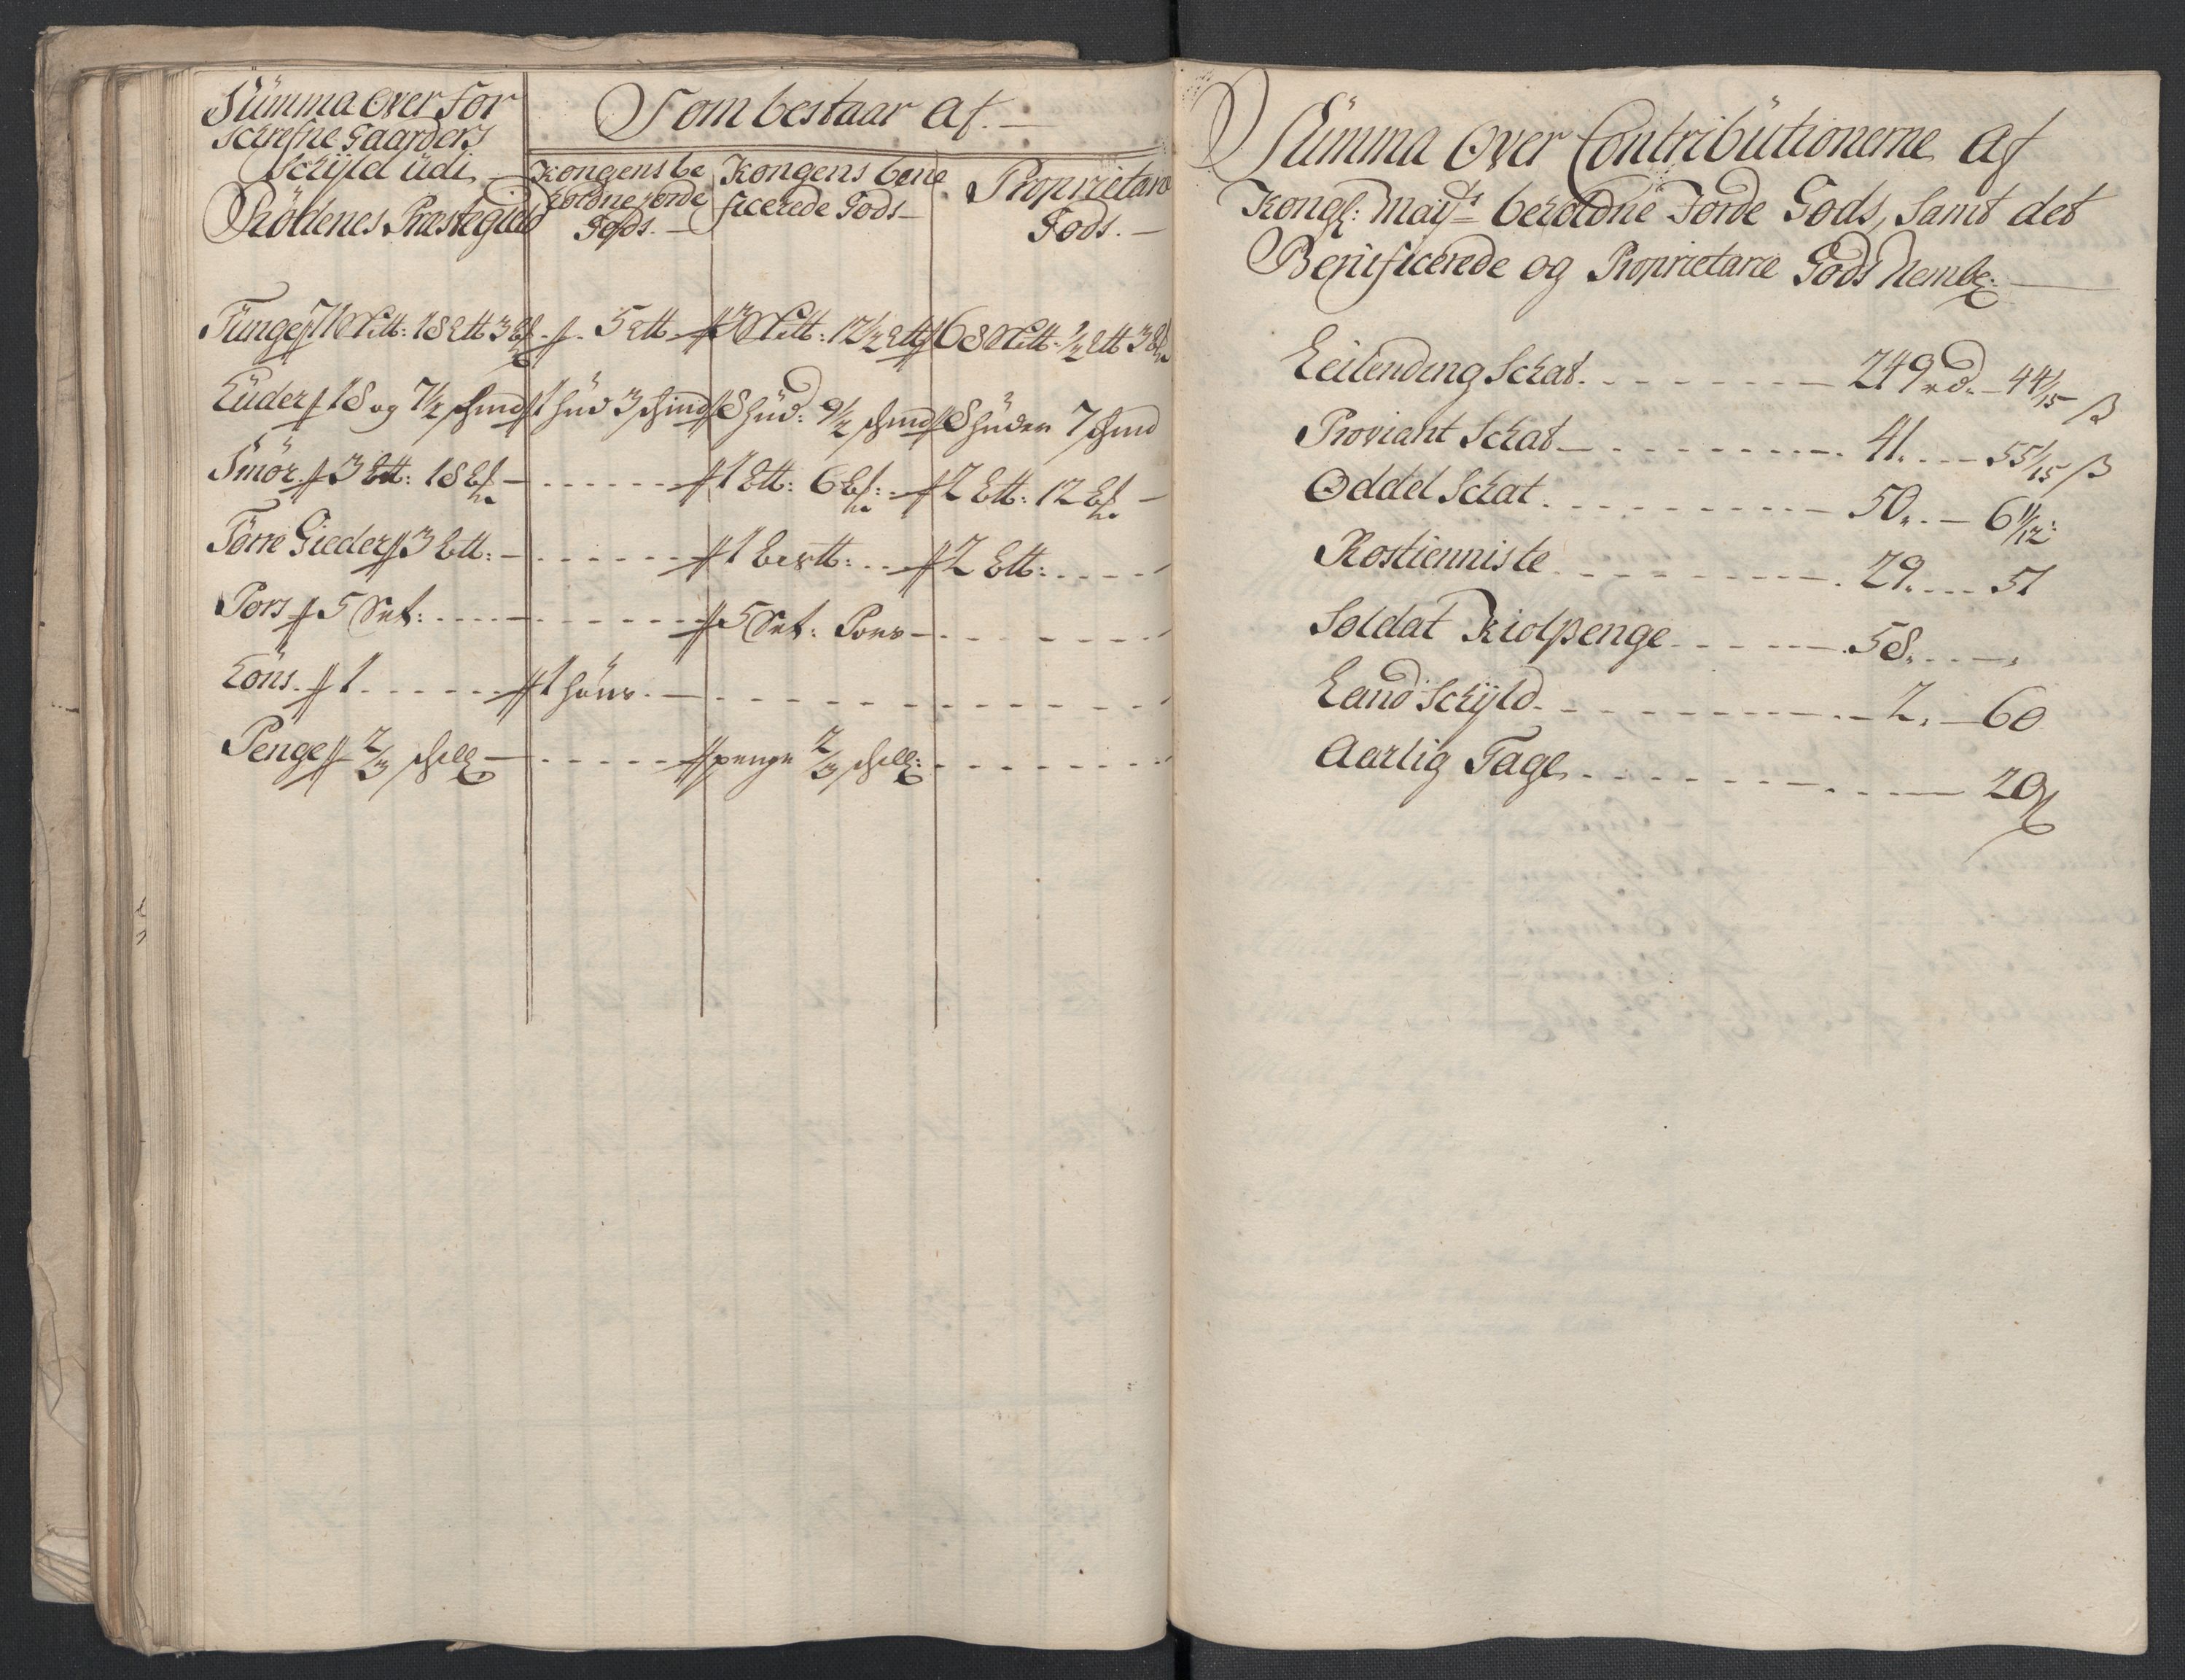 Summa Over For
schrefne Gaarders
Schÿld udi
Rödenes Præstegield
Som bestaar af.
Kongens be
holdne Jorde
Gods.
Kongens bene
ficerede Gods
Proprietarie
Gods.
Tunge // 71 Sktt: 18 Ltt 3 // 5 Ltt // 3 Sktt: 12½ Ltt // 68 Sktt. ½ Ltt 3
Huder // 18 og 7½ schind // 1 hud 3 schind // 8 hud: 9½ schind // 8 huder 7 schind
Smör // 3 Ltt: 18 // 1 Ltt: 6 // 2 Ltt: 12
Törre Gieder // 3 Ltt: // 1 // 2 Ltt:
Pors // 5 Set: // 5 Set: Pors
Höns // 1 // 1 höns
Penge // 2/3 schill // penge 2/3 schill:
Summa Over Contributionerne Af
Kongl: Maÿts beholdne Jorde Gods, Samt det
Benificerede og Proprietarie Gods Nembl:
Leilending Schat. 249 rd. 44 1/15 β
Proviant Schat 41. 55 1/15 β
Oddel Schat. 50. 6 11/12:
Rostienniste 29. 51
Soldat Kiolpenge 58.
Land Schÿld 2. 60
Aarlig Tage 20